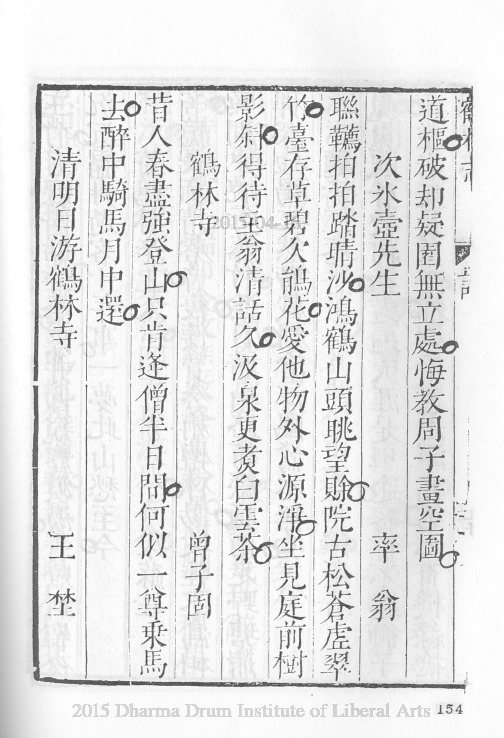 道樞破却疑團無立處悔教周子畫空圖
次氷壺先生　率翁
聯鑣拍拍踏晴沙鴻鶴山頭眺望賒院古松蒼虛翠
竹臺存草碧久鵑花愛他物外心源淨坐見庭前樹
影斜得待主翁清話久汲泉更煑白雲茶
鶴林寺　曾子固
昔人春盡強登山只肯逢僧半日間何似一尊乘馬
去醉中騎馬月中還
清明日游鶴林寺　王埜
154
2015 Dharma Drum Institute of Liberal Arts